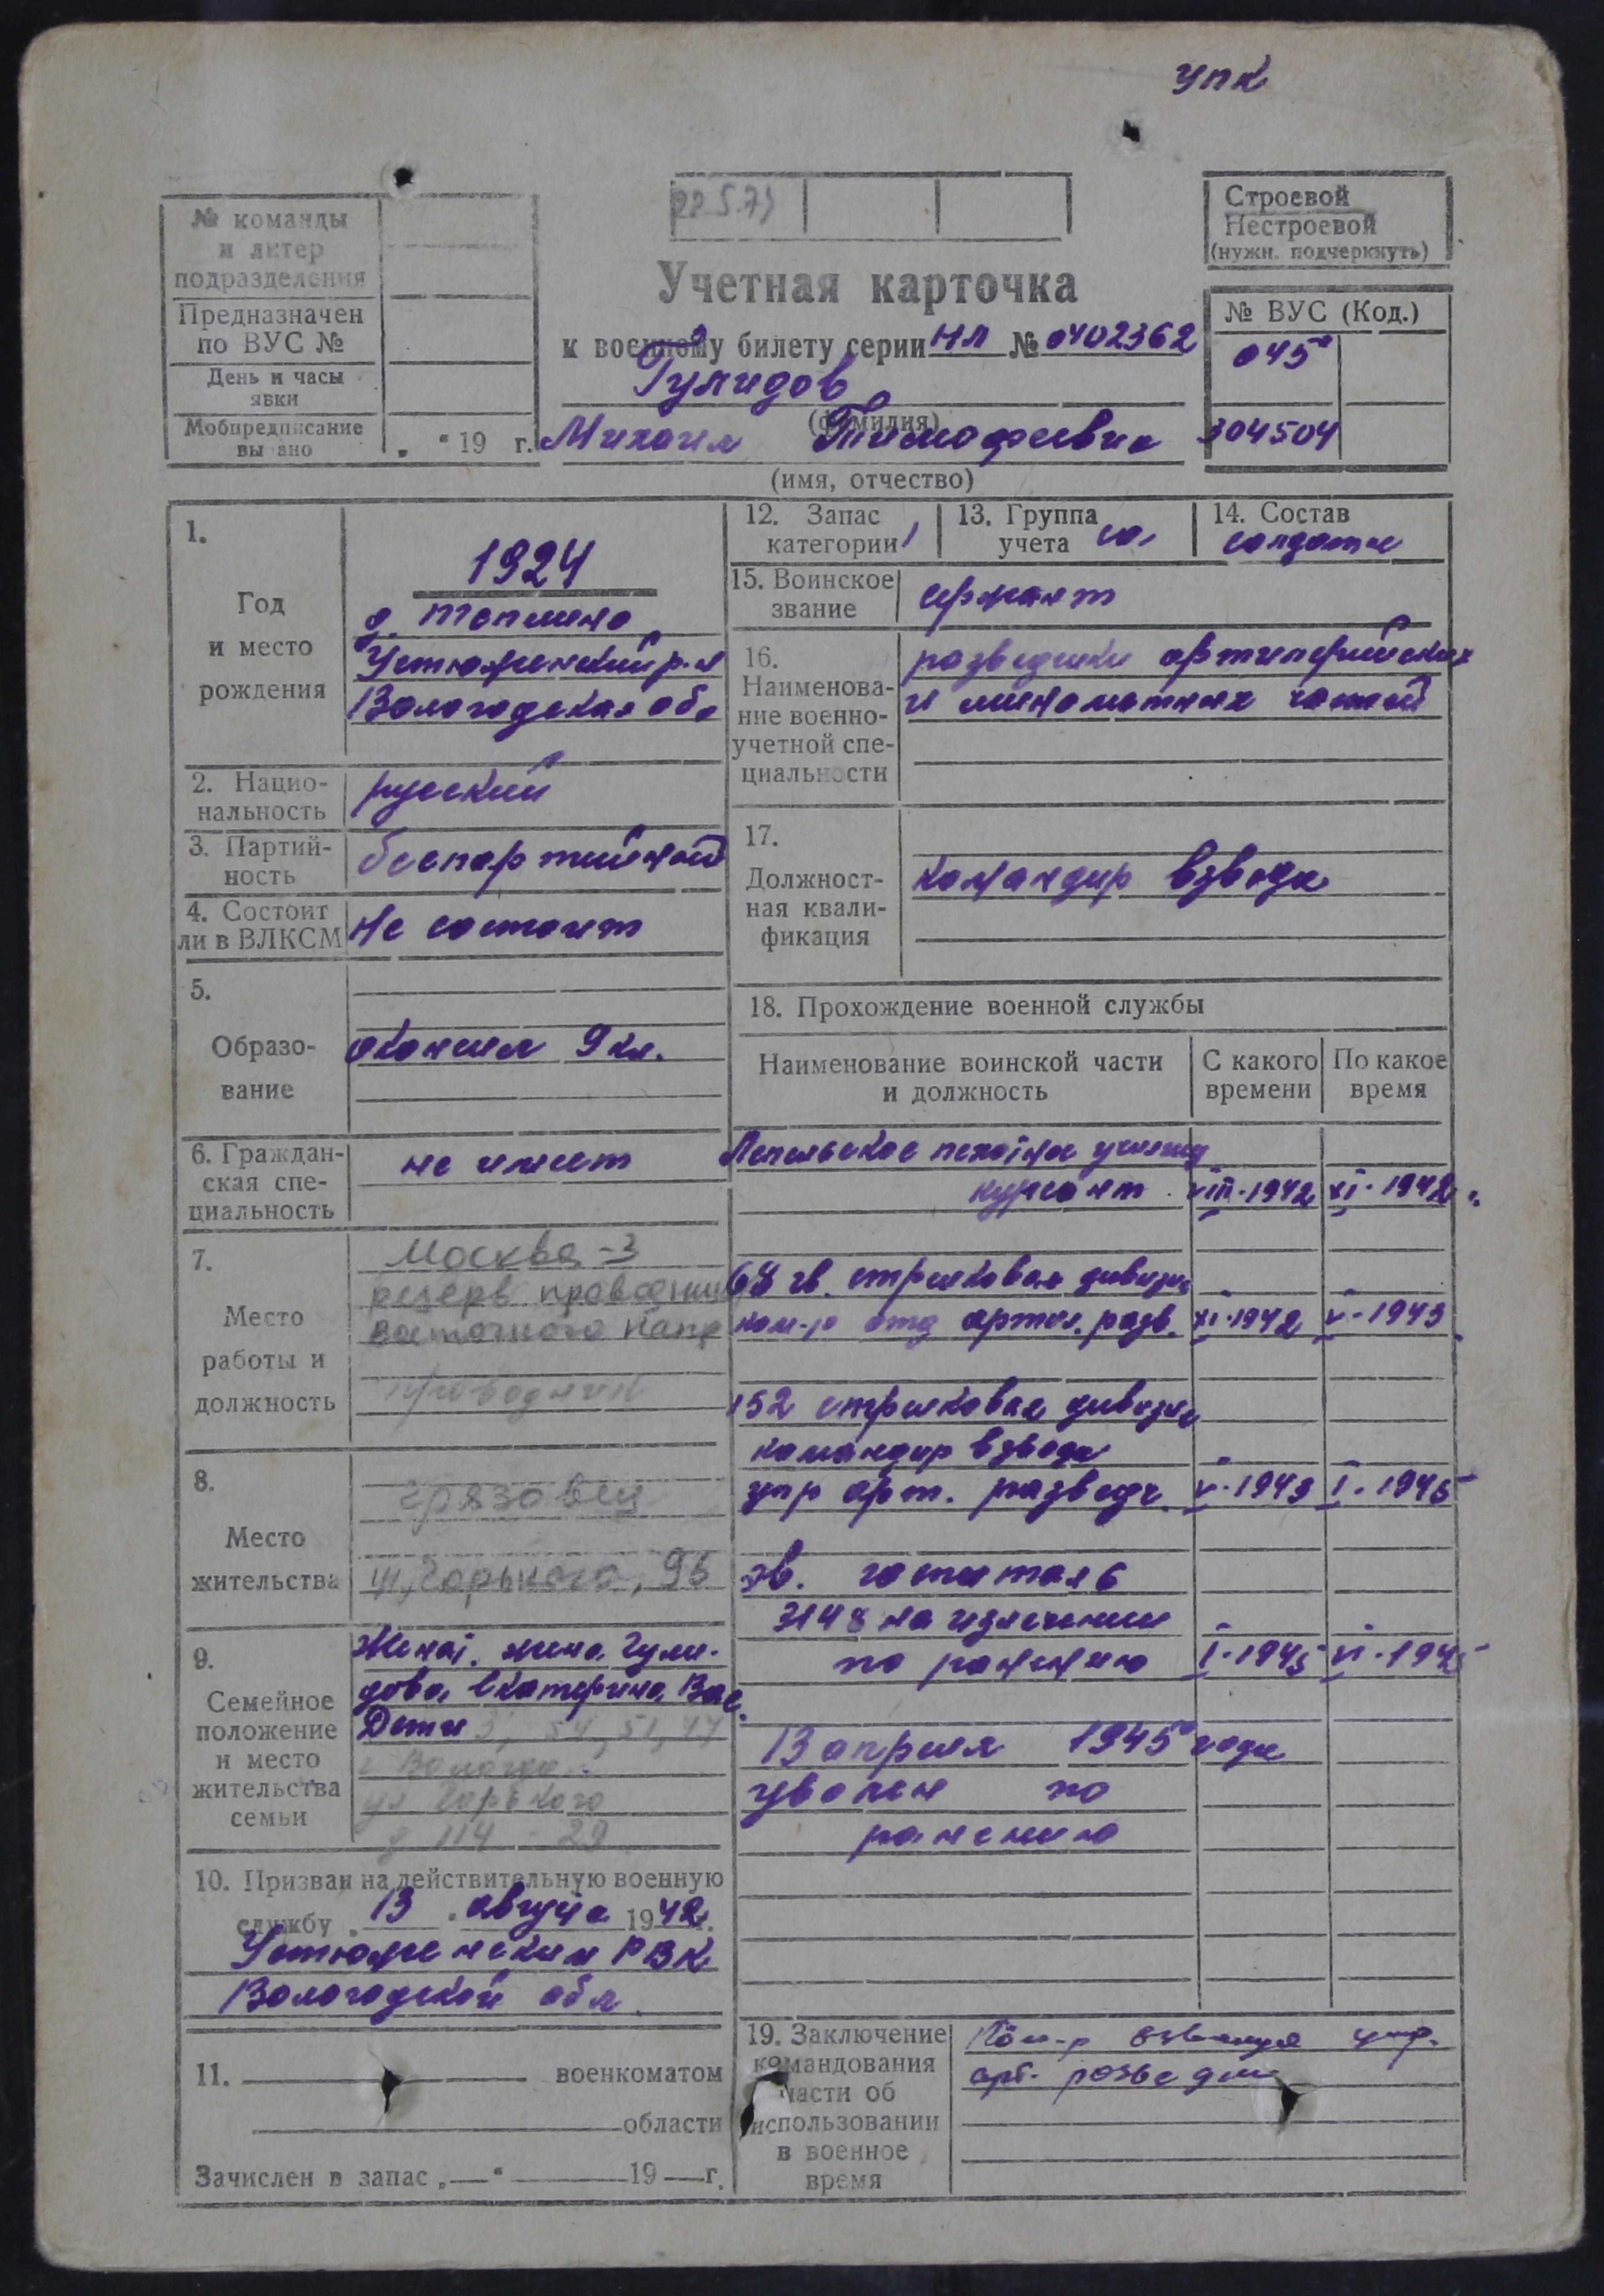 упк
22.5.73
Строевой
Нестроевой
(нужн. подчеркнуть)
№ команды
и литер
подразделения
Предназначен
по ВУС №
День и часы
явки
Мобпредписание
вы ано
„ “ 19 г.
Учетная карточка
к военному билету серии НЛ № 0402362
Гулидов
(фамилия)
Михаил Тимофеевич
(имя, отчество)
№ ВУС (Код.)
045
304504
1.
Год
и место
рождения
1924
Устюженский р-н
Вологодская обл
2. Нацио-
нальность
русский
3. Партий-
ность
беспартийный
4. Состоит
ли в ВЛКСМ
не состоит
5.
Образо-
вание
окончил 9 кл.
6. Граждан-
ская спе-
циальность
не имеет
7.
Место
работы и
должность
Москва-3
резерв проводник
восточного напр
проводник
8.
Место
жительства
Грязовец
ул, Горького, 93
9.
Семейное
положение
и место
жительства
семьи
Женат. жена Гули-
дова Екатерина Вас.
Дети 54, 51, 47
г Вологда
ул Горького
д 114 - 29
10. Призван на действительную военную
службу „13“ августа 1942 г.
Устюженским РВК
Вологодской обл.
11. военкоматом
области
Зачислен в запас „—“ 19 — г.
12. Запас
категории 1
13. Группа
учета са
14. Состав
солдаты
15. Воинское
звание
сержант
16.
Наименова-
ние военно-
учетной спе-
циальности
разведчики артиллерийских
и минометных частей
17.
Должност-
ная квали-
фикация
командир взвода
18. Прохождение военной службы
Наименование воинской части
и должность
С какого
времени
По какое
время
Лепельское пехотное училищ
курсант VIII-1942 XI-1942
68 гв. стрелковая дивизия
ком-р отд артил. разв. XI-1942 V-1943
152 стрелковая дивизия
командир взвода
упр арт. разведч. V-1943 I-1945
эв. госпиталь
3148 на излечении
по ранению I-1945 VI-1945
13 апреля 1945 года
уволен по
ранению
19. Заключение
командования
части об
использовании
в военное
время
Ком-р взвода упр.
арт. разведки